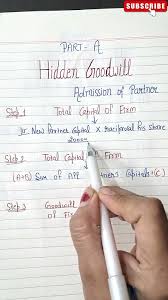 SUBSCRIBE
PART - A
Hidden Goodwill
Admission of Partner
Step 1 Total Capital of Firm
New Partner Capital X reciprocal his share
Step 2 Total Capital Firm
(A+B) Sum of All Partners Capitals + C)
Step 3 Goodwill
of Fi